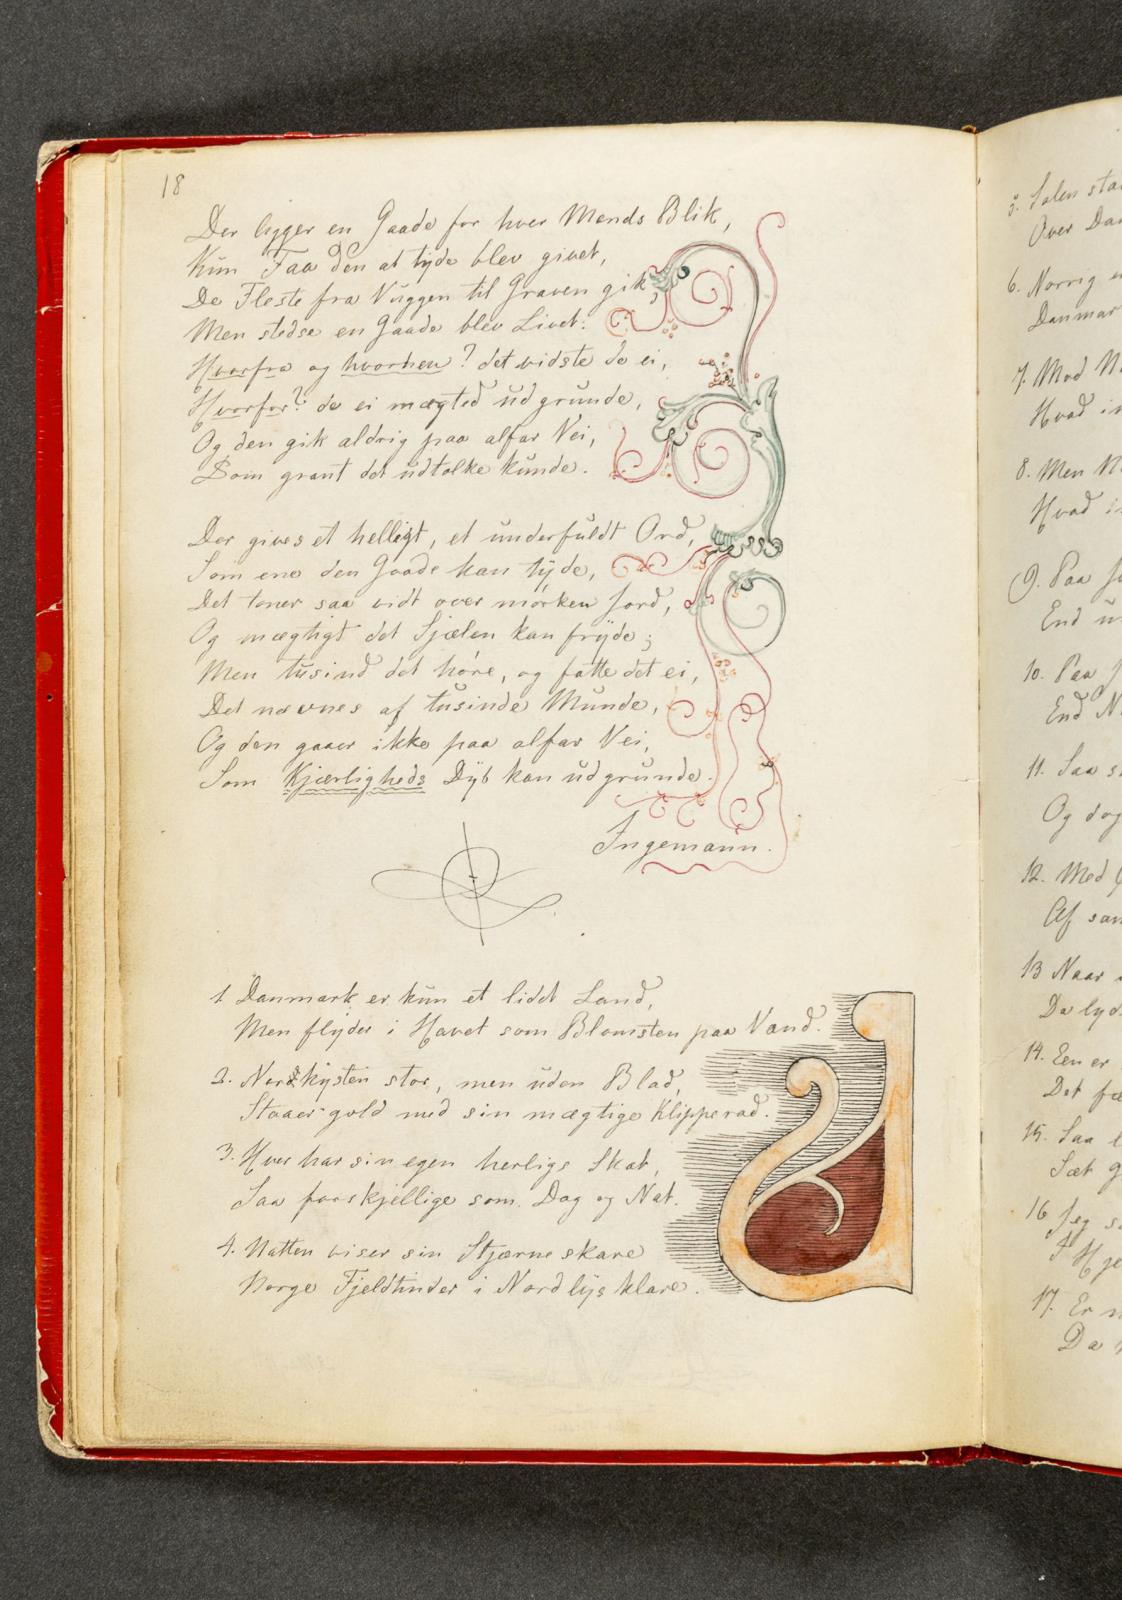 18
Der ligger en Gaade for hver Mands Blik,
Kun Faa den at tyde blev givet,
De Fleste fra Vuggen til Graven gik,
Men stedse en Gaade blev Livet:
Hvorfra og hvorhen? det vidste de ei,
Hvorfor? de ei mægted udgrunde,
Og den gik aldrig paa alfar Vei,
Som grant det udtolke kunde.
Der gives et helligt, et underfuldt Ord,
Som ene den Gaade kan tyde,
Det toner saa vidt over mørken Jord,
Og mægtigt det Sjælen kan fryde;
Men tusind det høre, og fatte det ei,
Det nævnes af tusinde Munde,
Og den gaaer ikke paa alfar Vei,
Som Kjærligheds Dyb kan udgrunde.
Ingemann.
1 Danmark er kun et lidet Land,
Men flyder i Havet som Blomsten paa Vand.
2. Nordkysten stor, men uden Blad,
Staaer gold med sin mægtige Klipperad.
3. Hver har sin egen herlige Skat,
Saa forskjellige som Dag og Nat.
4. Natten viser sin Stjerneskare
Norge Fjeldtinder i Nordlys klare.
5. Solen
Over
6. Norrig
7. Mod
Hvad
8. Men
Hvad
9. Paa
End
10. Paa
End
11. Saa
Og dog
12. Med
Af
13 Naar
Da
14. Een er
Det
15. Saa
Sæt
16 Jeg
I
17. Er
Da